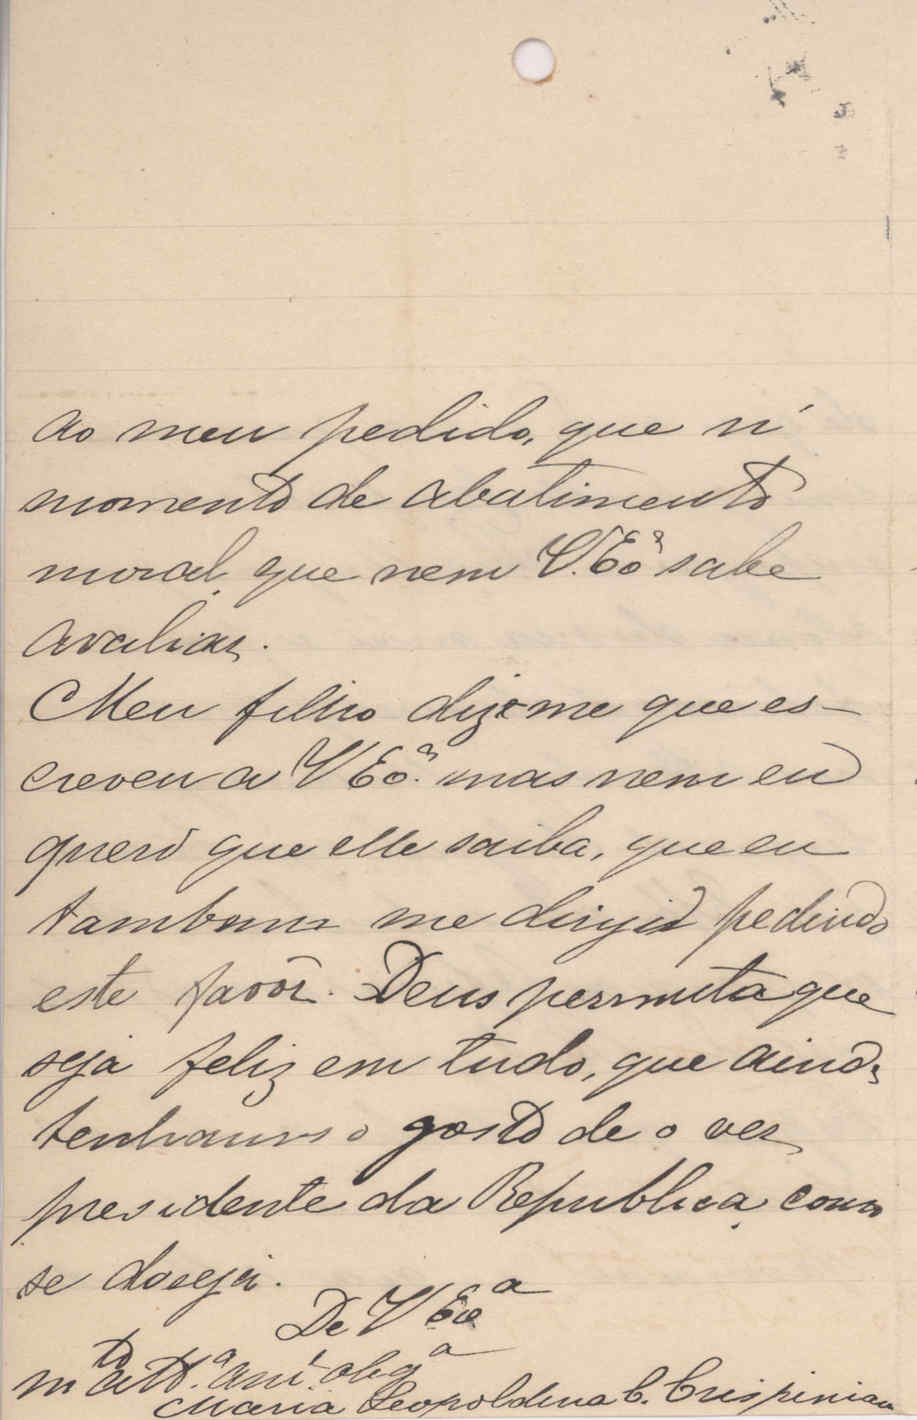 ao meu pedido, que n'
momento de abatimento
moral, que nem V. Exª sabe
avaliar.
Meu filho diz-me que es-
creveu a V Exª mas nem eu
quero que elle saiba, que eu
tambem me dirijo pedindo
este favôr. Deus permita que
seja feliz em tudo, que ainda
tenhamos o gosto de o ver
presidente da Republica, como
se deseja.
De V Exª
mto attª obgª
Maria Leopoldina C. Crispiniano